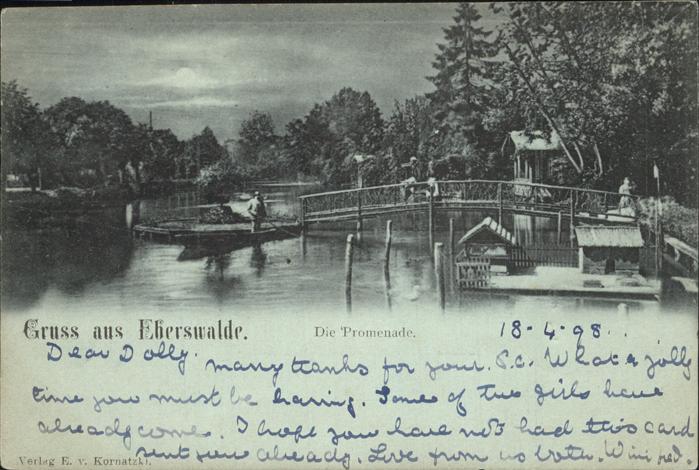 Gruss aus Eberswalde.
Die Promenade.
18-4-98.
Dear Dolly. many thanks for your P.c. What a jolly
time you must be having. Some of the girls have
already come. I hope you have not had this card
sent you already. Love from us both. Winifred.
Verlag E. v. Kornatzki.